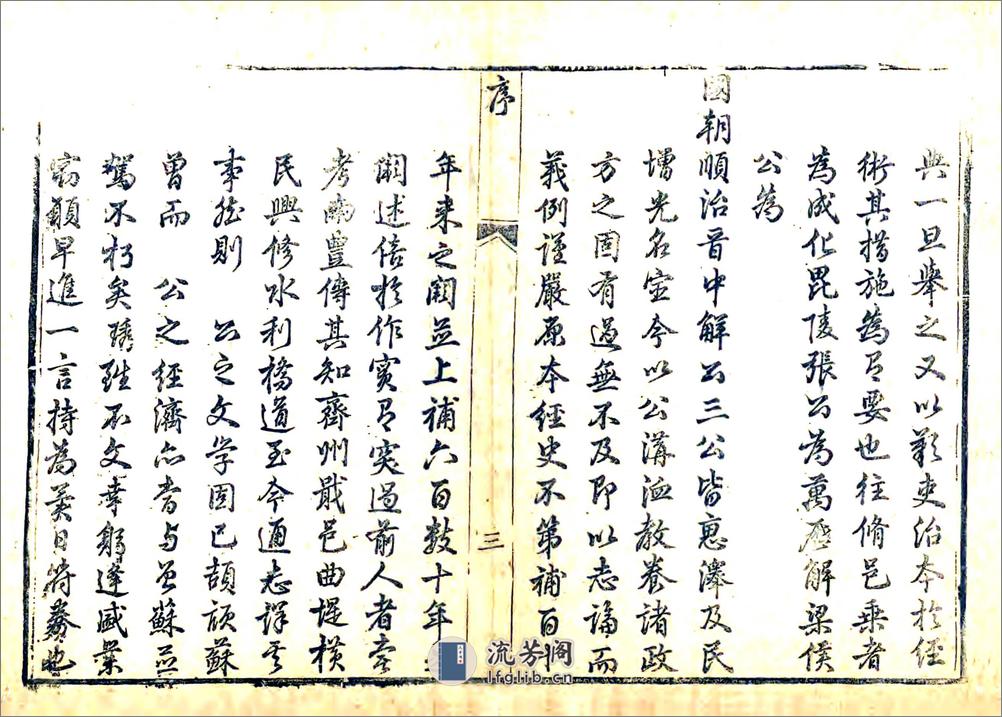 典一旦舉之又以歎吏治本於經
術其措施為有要也往脩邑乘者
為成化毘陵張公為萬歷解梁侯
公為
國朝順治晉中解公三公皆惠澤及民
增光名宦今以公溝洫教養諸政
方之固有過無不及即以志論而
義例謹嚴原本經史不第補百
序
三
年來之闕並上補六百數十年
闕述倍於作實有突過前人者
考南豐傳其知齊州戢邑曲堤橫
民興修水利橋道至今通志詳
事然則 公之文學固已頡頏蘇
曾而 公之經濟亦嘗与曾蘇並
駕不朽矣 不文幸躬逢盛舉
竊願早進一言持為美日符券也
流芳阁
lfglib.cn